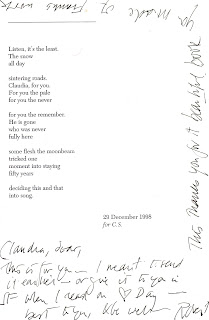 Listen, it's the least.
The snow
all day
sintering roads.
Claudia, for you.
For you the pale
for you the never
for you the remember.
He is gone
who was never
fully here
some flesh the moonbeam
tricked one
moment into staying
fifty years
deciding this and that
into song.
29 December 1998
for C.S.
Claudia, dear,
this is for you — I meant to send
it earlier — or give it to you in
SF when I read on ♡ Day —
best to you, & be well — Robert
This thanks you for yr beautiful book